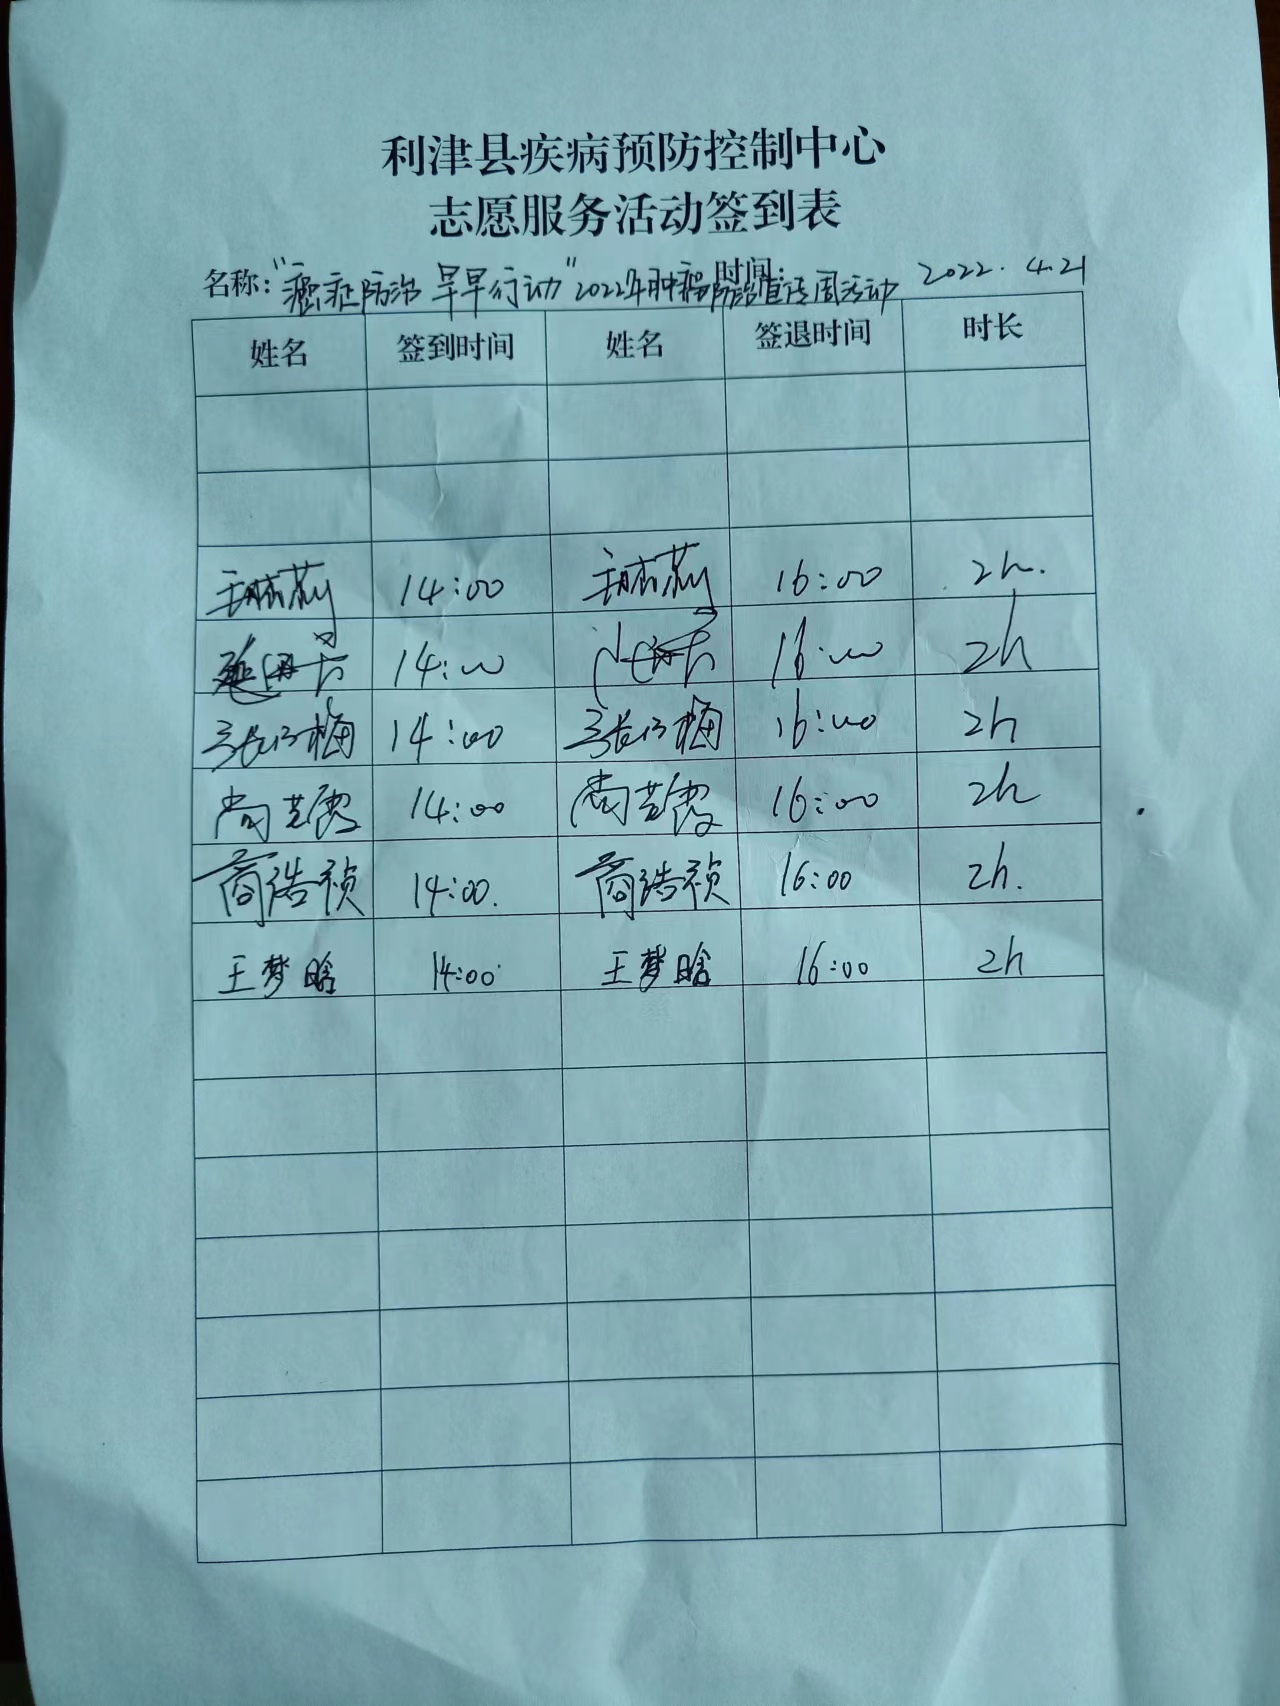 利津县疾病预防控制中心
志愿服务活动签到表
名称："癌症防治 早早行动"2022年肿瘤防治宣传周活动 时间： 2022.4.21
姓名 签到时间 姓名 签退时间 时长
14:00 16:00 2h.
14:00 16:00 2h
14:00 16:00 2h
尚芝霞 14:00 尚芝霞 16:00 2h
商浩祯 14:00. 商浩祯 16:00 2h.
王梦晗 14:00 王梦晗 16:00 2h